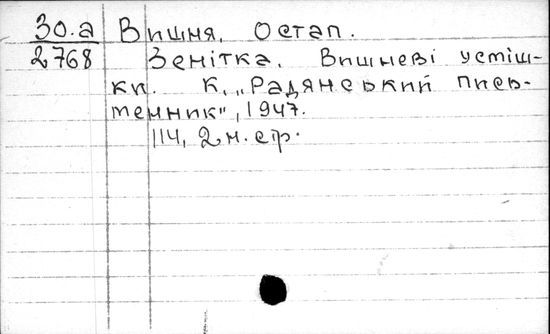 30.а Вишня, Остап.
2768 Зенітка. Вишневі усміш-
ки. К., „Радянський пись-
менник", 1947.
114, 2 н. стр.